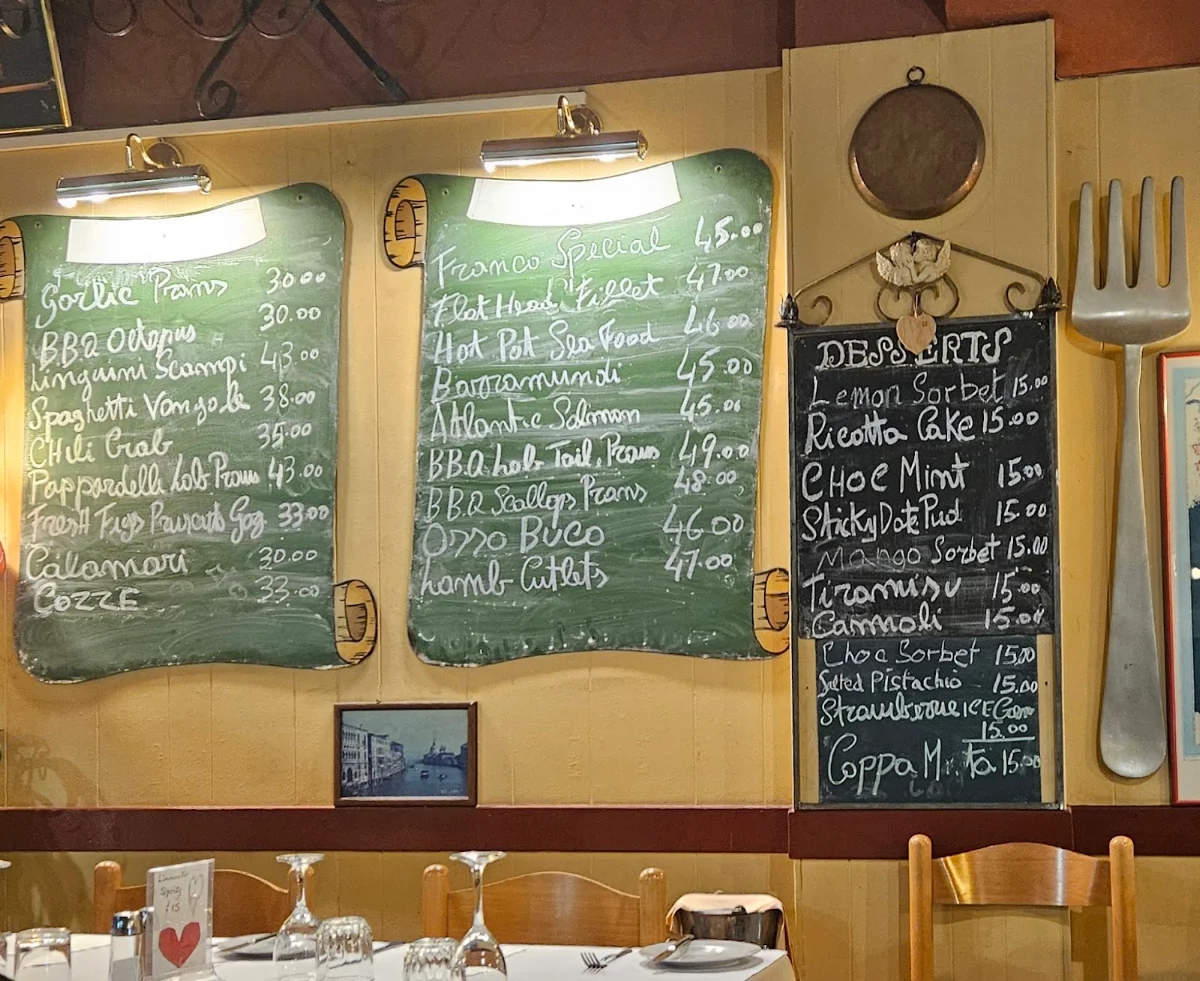 Garlic Prans 30.00
BBQ Octapus 30.00
Linguini Scampi 43.00
Spaghetti Vongole 38.00
CHili Crab 35.00
Pappardelli Lob Prans 43.00
FresH Figs Goz 33.00
Calamari 30.00
COZZE 33.00
Franco Special 45.00
Flat Head Fillet 47.00
Hot Pot Sea Food 46.00
Barramundi 45.00
Atlantic Salmon 45.00
BBQ Lob Tail, Prans 49.00
BBQ Scallops Prans 48.00
Ozzo Buco 46.00
Lamb Cutlets 47.00
DESSERTS
Lemon Sorbet 15.00
Ricotta Cake 15.00
CHOC Mint 15.00
Sticky Date Pud 15.00
Mango Sorbet 15.00
Tiramisu 15.00
Cannoli 15.00
Choc Sorbet 15.00
Salted Pistachio 15.00
ICE
15.00
Coppa 15.00
Spritz